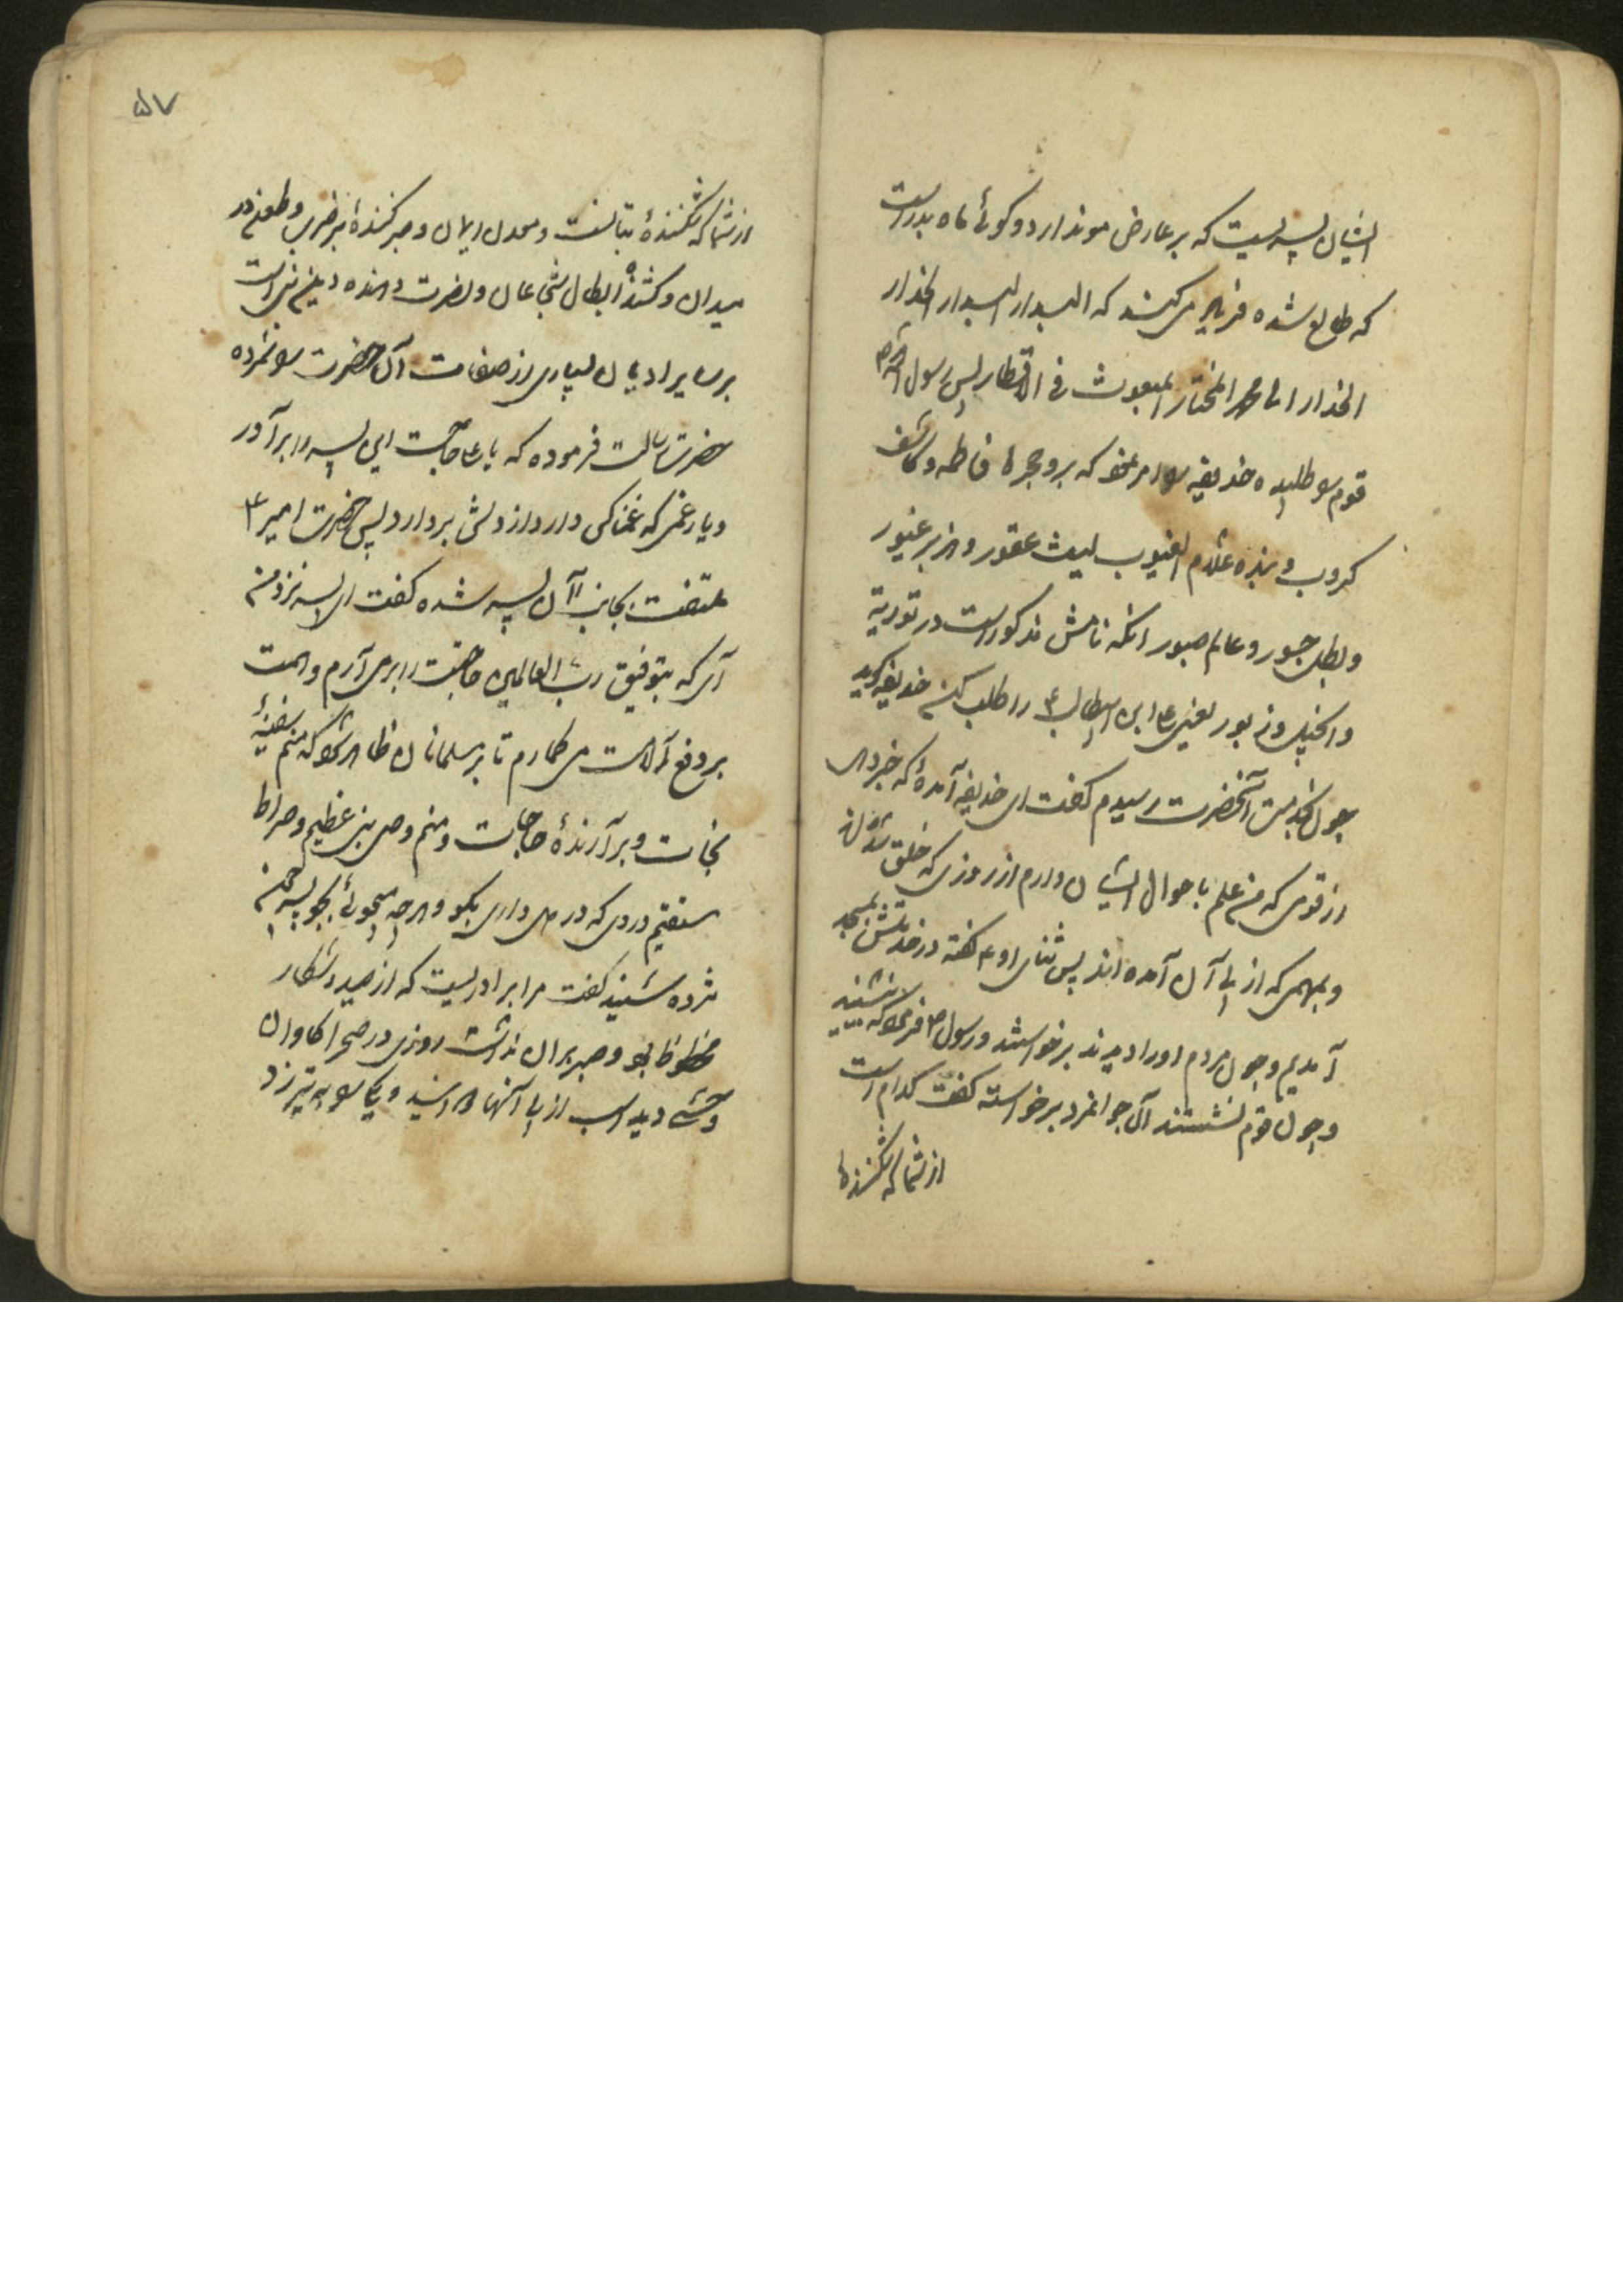 ایشان پسریست که بر عارض مو ندارد و گوئی ماه بدر است
که طالع شده فریاد می‌کنند که البدار البدار الحذار
الحذار الی محمد المختار المبعوث فی الاقطار پس رسول اکرم
قوم سو طلبیده حذیفه سو امر نمود که برو حجرهٔ فاطمه و کاشف
کروب و بنده علام الغیوب لیث عقور و هزبر غیور
و بطل جسور و عالم صبور انکه نامش مذکور است در توریة
وانجیل و زبور یعنی علی ابن ابیطالب ع را طلب کن حذیفه گوید
چون بخدمت آنحضرت رسیدم گفت ای حذیفه آمدهٔ که خبر دهی
از قومی که من علم باحوال ایشان دارم از روزی که خلق شده‌اند
و بمهمی که از پی آن آمده اند پس ثنای او ع گفته در خدمتش بمسجد
آمدیم و چون مردم او را دیدند برخواستند و رسول ص فرمود که بنشینید
و چون قوم نشستند آن جوانمرد برخواسته گفت کدام است
از شما که شکنندهٔ
۵۷
از شما که شکنندهٔ بتانست و معدن ایمان و صبر کنندهٔ بر ضرب و طعن در
میدان و کشندهٔ ابطال شجاعان و نصرت دهنده دین نبی است
بر سایر ادیان بسیاری از صفات آن حضرت سو شمرده
حضرت رسالت فرموده که یا علی حاجت این پسر را برآور
و بار غمی که غمناکی دارد از دلش بردار پس حضرت امیر ع
ملتفت بجانب آن پسر شده گفت ای پسر نزد من
آی که بتوفیق رب العالمین حاجتت را برمی‌آرم و همت
بر دفع آلامت می‌گمارم تا بر مسلمانان ظاهر شود که منم سفینهٔ
نجات و برآرندهٔ حاجات و منم وصی نبی عظیم و صراط
مستقیم دردی که در دل داری بگو و هرچه میجوئی بجو پسر چون
مژده شنید گفت مرا برادریست که از صید و شکار
محظوظ بود و صبر بر آن نداشت روزی در صحرا گاوان
وحشی دید اسب از پی آنها دوانید و یکی سو به تیر زد